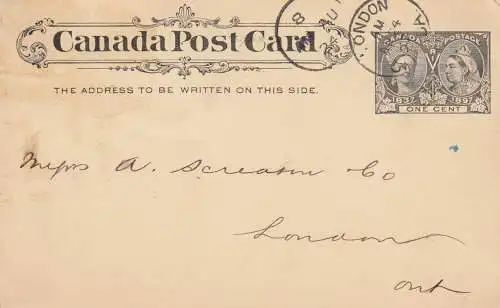 Canada Post Card
LONDON
CA
AM 4
8
CANADA POSTAGE
1837 1897
ONE CENT
THE ADDRESS TO BE WRITTEN ON THIS SIDE.
Messrs A. Screaton Co
London
Ont